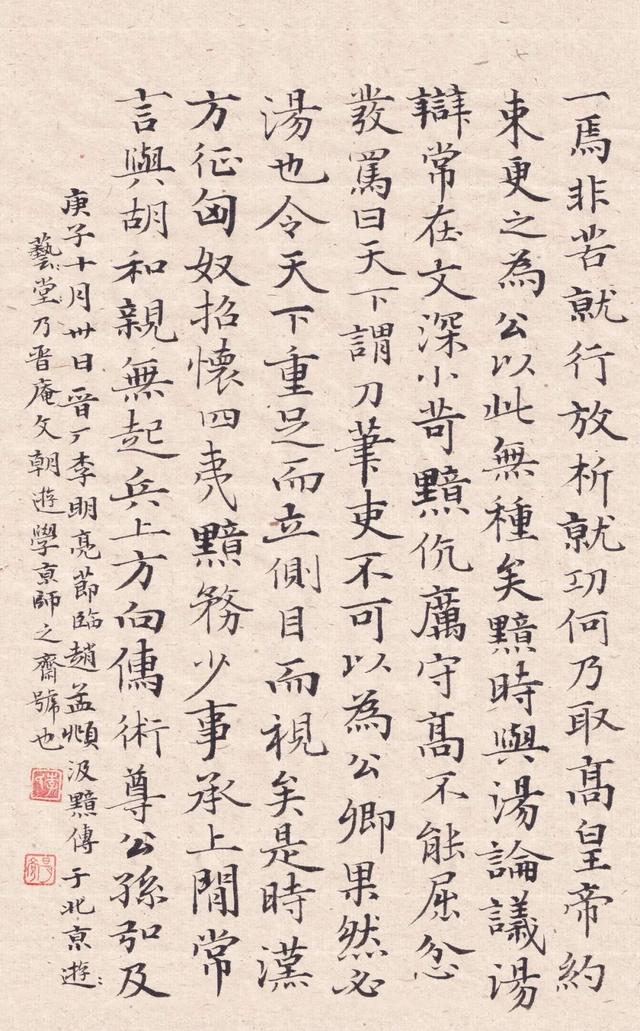 一焉非苦就行放析就功何乃取高皇帝約
束更之為公以此無種矣黯時與湯論議湯
辯常在文深小苛黯伉厲守高不能屈忿
發罵曰天下謂刀筆吏不可以為公卿果然必
湯也令天下重足而立側目而視矣是時漢
方征匈奴招懷四夷黯務少事承上閒常
言與胡和親無起兵上方向儒術尊公孫弘及
庚子十月卅日晉丁李明亮節臨趙孟頫汲黯傳于北京遊
藝堂乃晉庵文朝遊學京師之齋號也